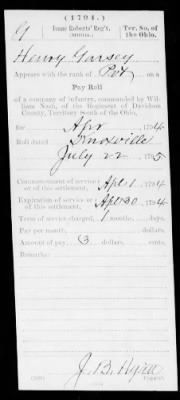 (1794.)
G | Isaac Roberts' Reg't, | Ter. So. of the Ohio.
Henry
Appears with the rank of Pvt on a
Pay Roll
of a company of infantry, commanded by William Nash, of the Regiment of Davidson
County, Territory South of the Ohio,
for Apr 1794
Roll dated Knoxville
July 22 1795
Commencement of service or of this settlement, Apl 1 1794
Expiration of service or of this settlement, Apl 30 1794
Term of service charged, 1 months, days.
Pay per month, dollars, cents.
Amount of pay, 3 dollars, cents.
Remarks:
J. B.
Copyist.